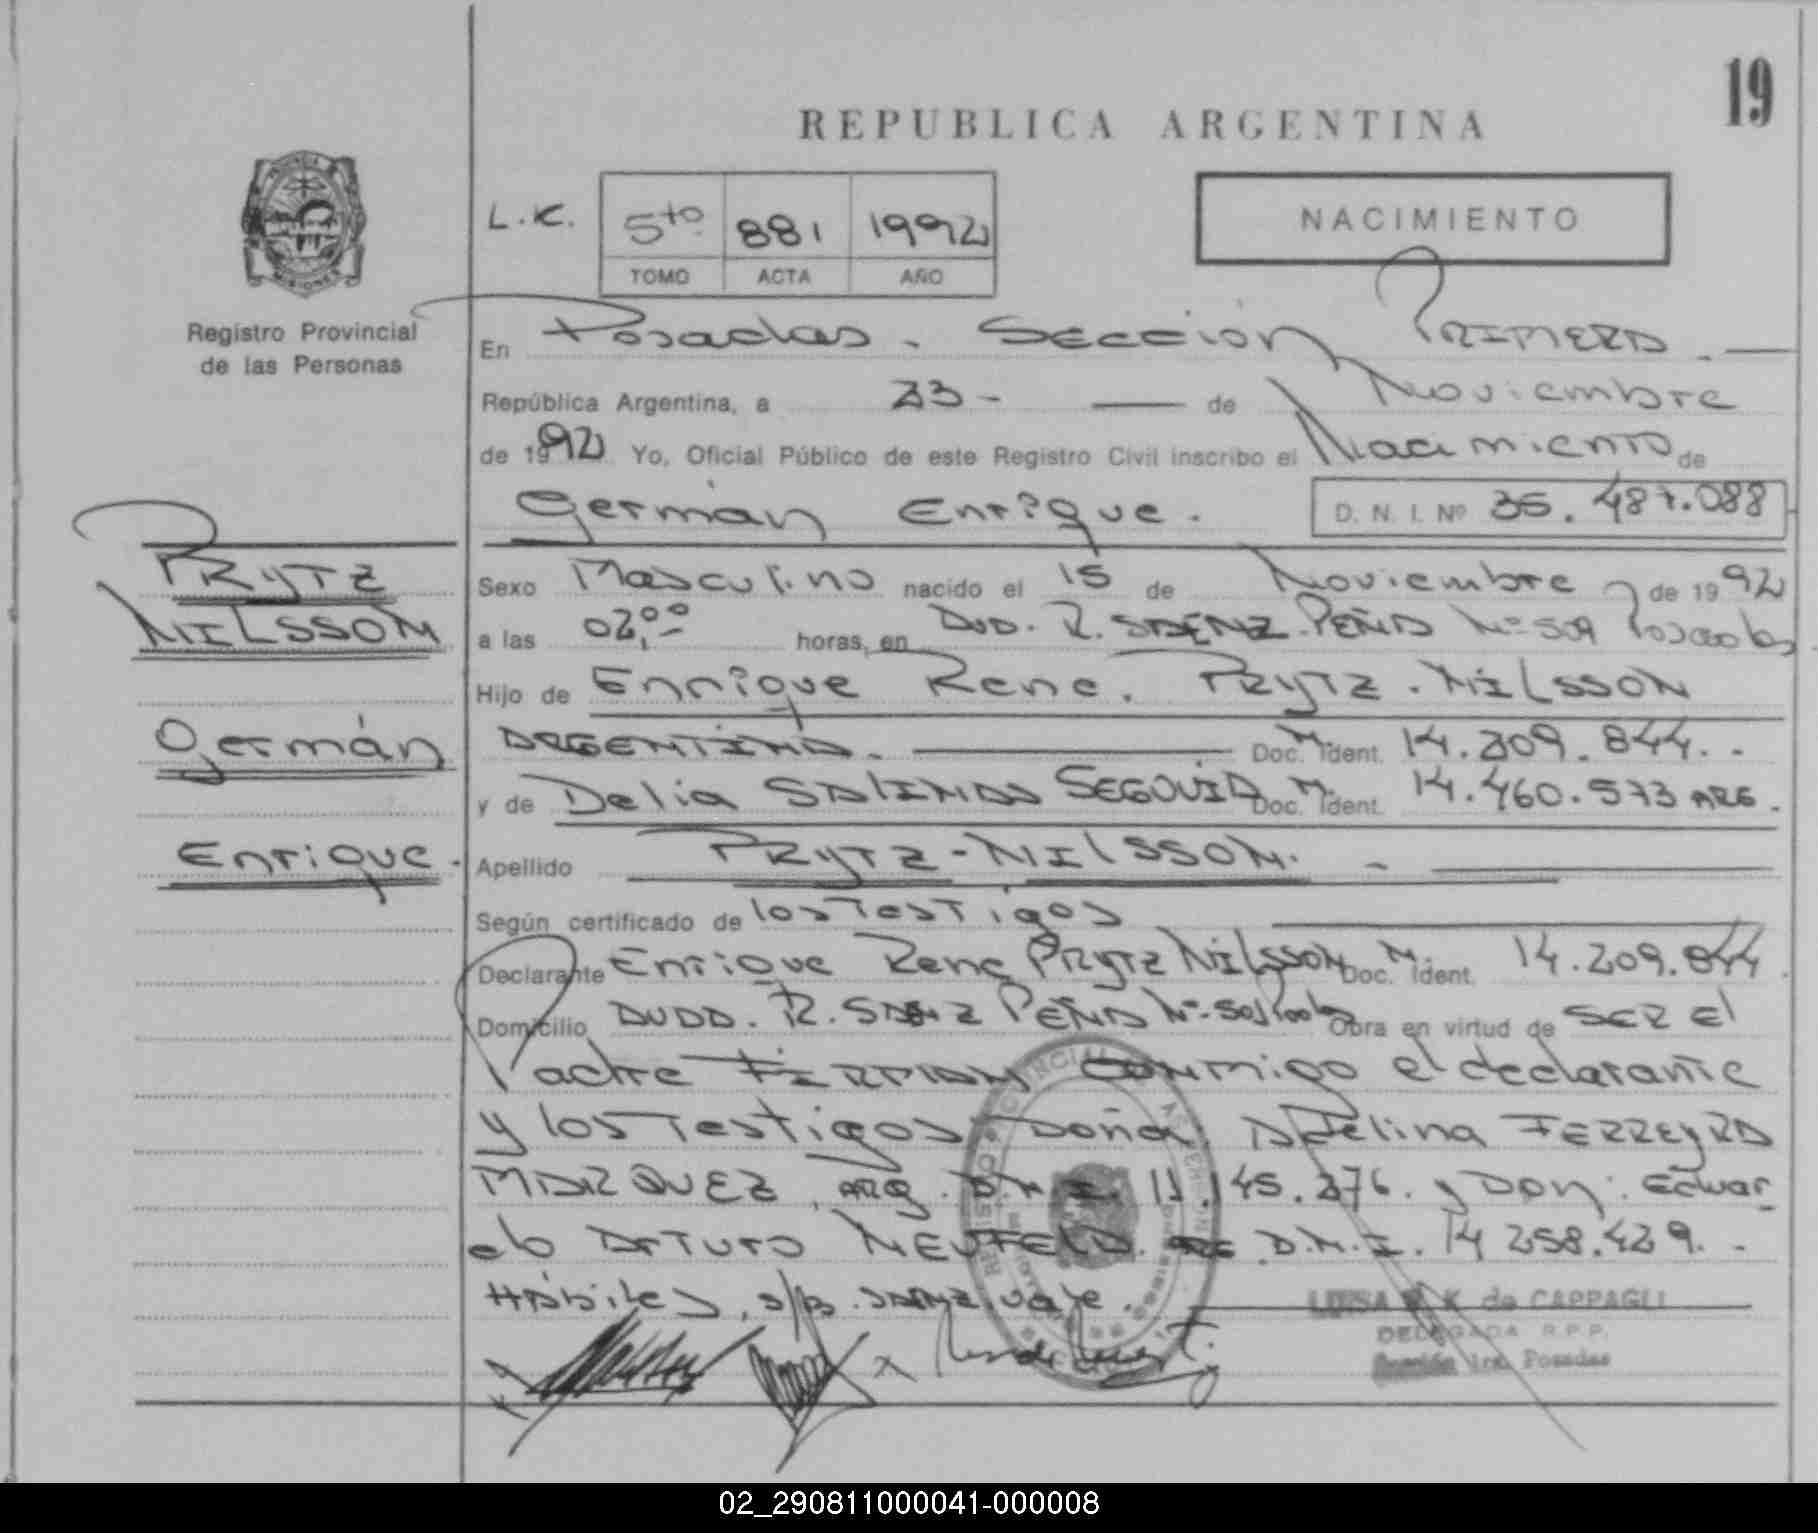 19
REPUBLICA ARGENTINA
L.C. 5to 881 1992
TOMO ACTA AÑO
NACIMIENTO
MISIONES
Registro Provincial
de las Personas
En Posadas. Sección PRIMERA.
República Argentina, a 23 - de Noviembre
de 1992 Yo, Oficial Público de este Registro Civil inscribo el Nacimiento de
Germán Enrique. D. N. I. Nº 35.487.088
PRYTZ
NILSSON
Germán
Enrique.
Sexo Masculino nacido el 15 de Noviembre de 1992
a las 02,00 horas, en AVD. R. SAENZ PEÑA Nº 509 Posadas
Hijo de Enrique Rene. PRYTZ.NILSSON
ARGENTINA. Doc. Ident. M. 14.209.844.
y de Delia SALINAS SEGOVIA Doc. Ident. M. 14.460.573 ARG.
Apellido PRYTZ-NILSSON. -
Según certificado de los Testigos
Declarante Enrique Rene PRYTZ NILSSON Doc. Ident. M. 14.209.844
Domicilio R. PEÑA Nº Obra en virtud de SER El
Padre FIRMAN CONMIGO el declarante
y los Testigos Doña FERREYRA
MARQUEZ. ARG. D.N.I. 11.145.276. y Don: Eduar
do Arturo NEUFELD. D.N.I. 14 258.429.
HABiles, s/b. vale.
LUISA K. de CAPPAGLI
DELEGADA R.P.P.
Sección 1ra. Posadas
02_290811000041-000008